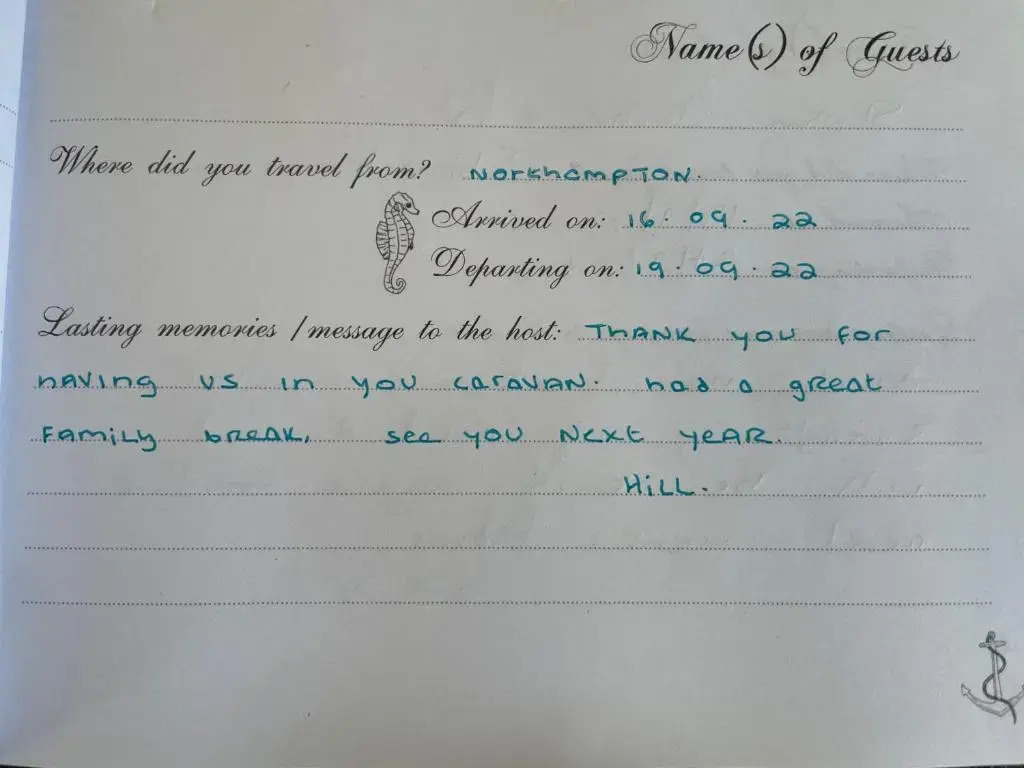 Name(s) of Guests
Where did you travel from? NorthampTON.
Arrived on: 16.09.22
Departing on: 19.09.22
Lasting memories / message to the host: THANK you For
having us in you caravan. had a great
Family break, see you Next year.
Hill.